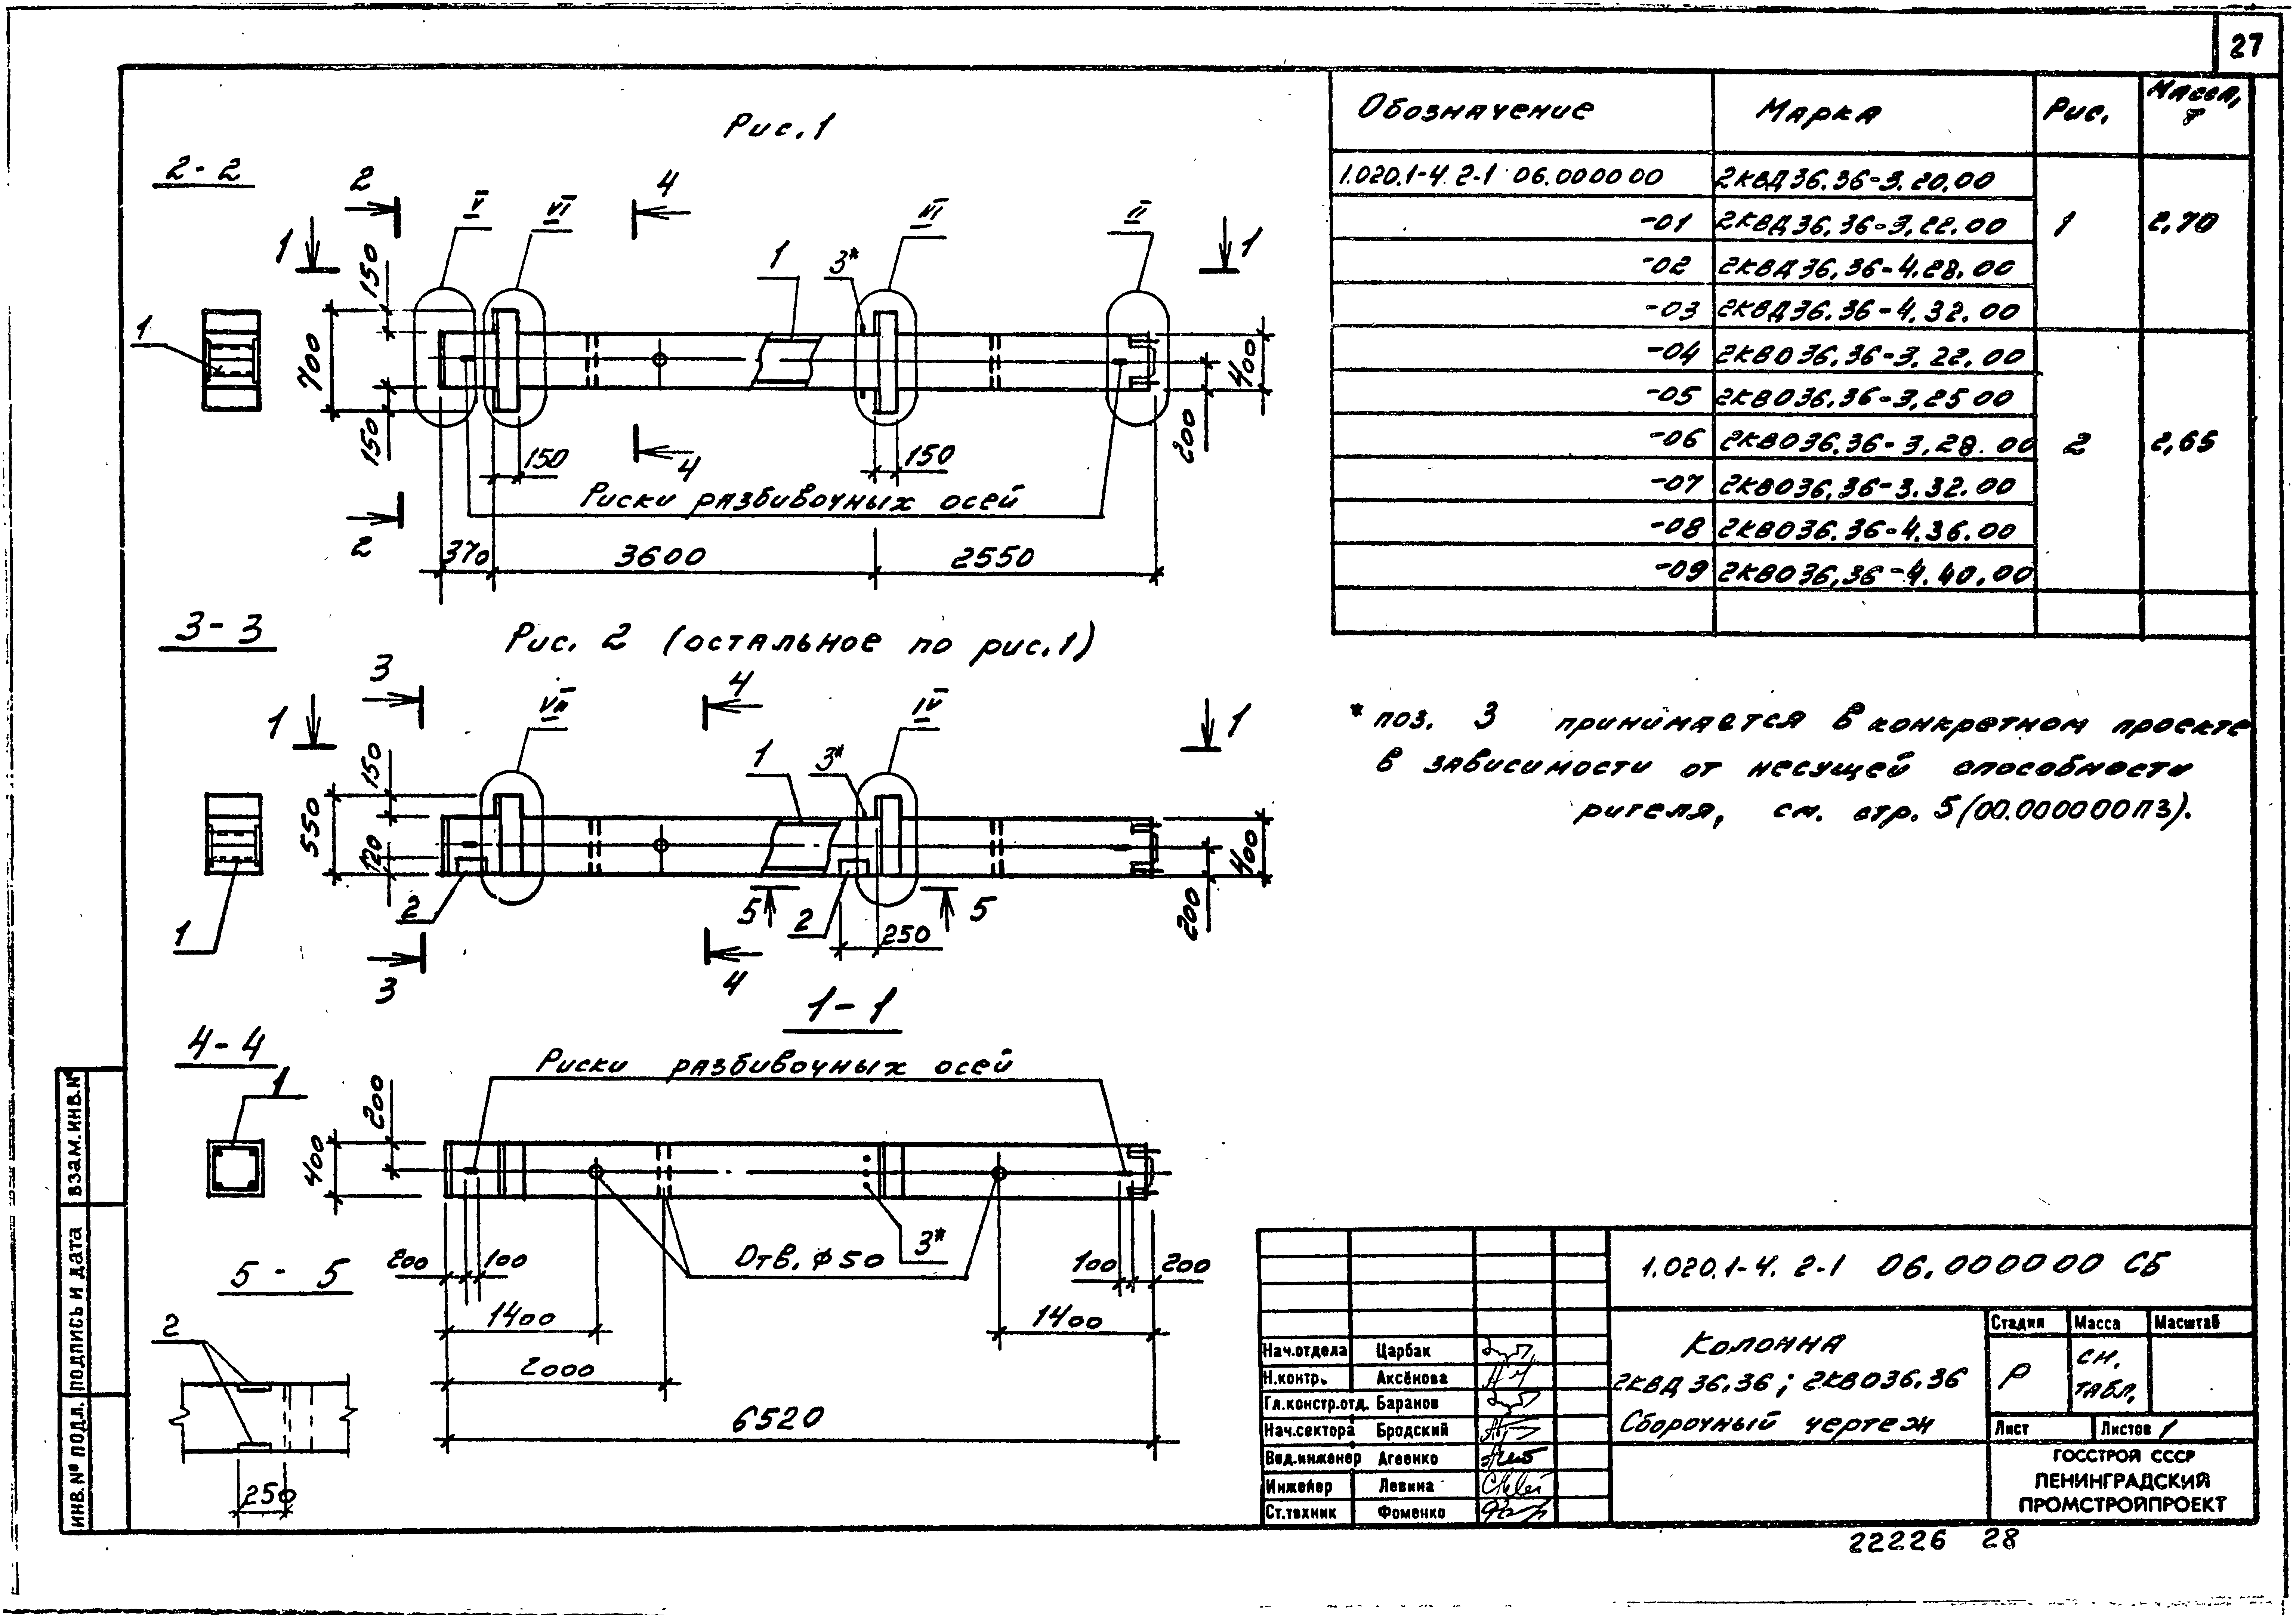 27
Рис.1
2-2
2
4
V
VI
VI
II
1
1
1
3*
1
150
700
150
400
200
150
4
150
2
Риски разбивочных осей
370
3600
2550
3-3
Рис. 2 (остальное по рис.1)
3
4
VII
IV
1
1
1
3*
150
550
120
400
200
2
5
2
5
250
1
3
4
1-1
4-4
Риски разбивочных осей
1
200
400
5 - 5
200
100
Отв. ф50
3*
100
200
1400
1400
2
2000
6520
250
Обозначение Марка Рис. Масса, т
1.020.1-4. 2-1 06.000000 2КВД36.36-3.20.00
-01 2КВД36.36-3.22.00 1 2,70
-02 2КВД36.36-4.28.00
-03 2КВД36.36-4.32.00
-04 2КВО36.36-3.22.00
-05 2КВО36.36-3.25.00
-06 2КВО36.36-3.28.00 2 2,65
-07 2КВО36.36-3.32.00
-08 2КВО36.36-4.36.00
-09 2КВО36.36-4.40.00
* поз. 3 принимается в конкретном проекте
в зависимости от несущей способности
ригеля, см. стр. 5 (00.000000ПЗ).
1.020.1-4. 2-1 06.000000 СБ
Колонна
2КВД36.36; 2КВО36.36
Сборочный чертеж
Стадия Масса Масштаб
Р см. табл.
Лист Листов 1
ГОССТРОЙ СССР
ЛЕНИНГРАДСКИЙ
ПРОМСТРОЙПРОЕКТ
Нач.отдела Царбак
Н.контр. Аксёнова
Гл.констр.отд. Баранов
Нач.сектора Бродский
Вед.инженер Агеенко
Инженер Левина
Ст.техник Фоменко
ИНВ.№ ПОДЛ. ПОДПИСЬ И ДАТА ВЗАМ.ИНВ.№
22226 28